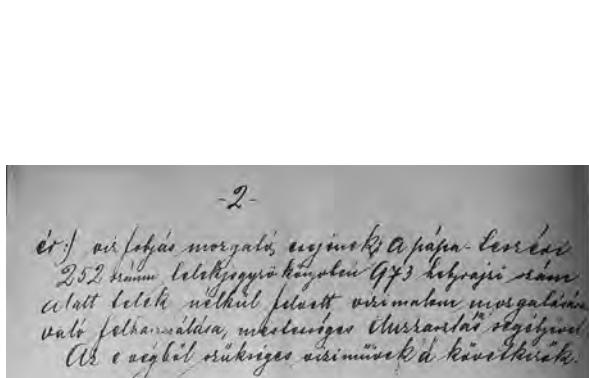 -2-
ér:/ víz folyás mozgató erejének, a pápa-
252 számu telekjegyzőkönyvben 973 helyrajzi szám
alatt telek nélkül felvett vizimalom mozgatására
való felhasználása, mesterséges duzzasztás segélyével
Az e végből szükséges vizimüvek a következők.